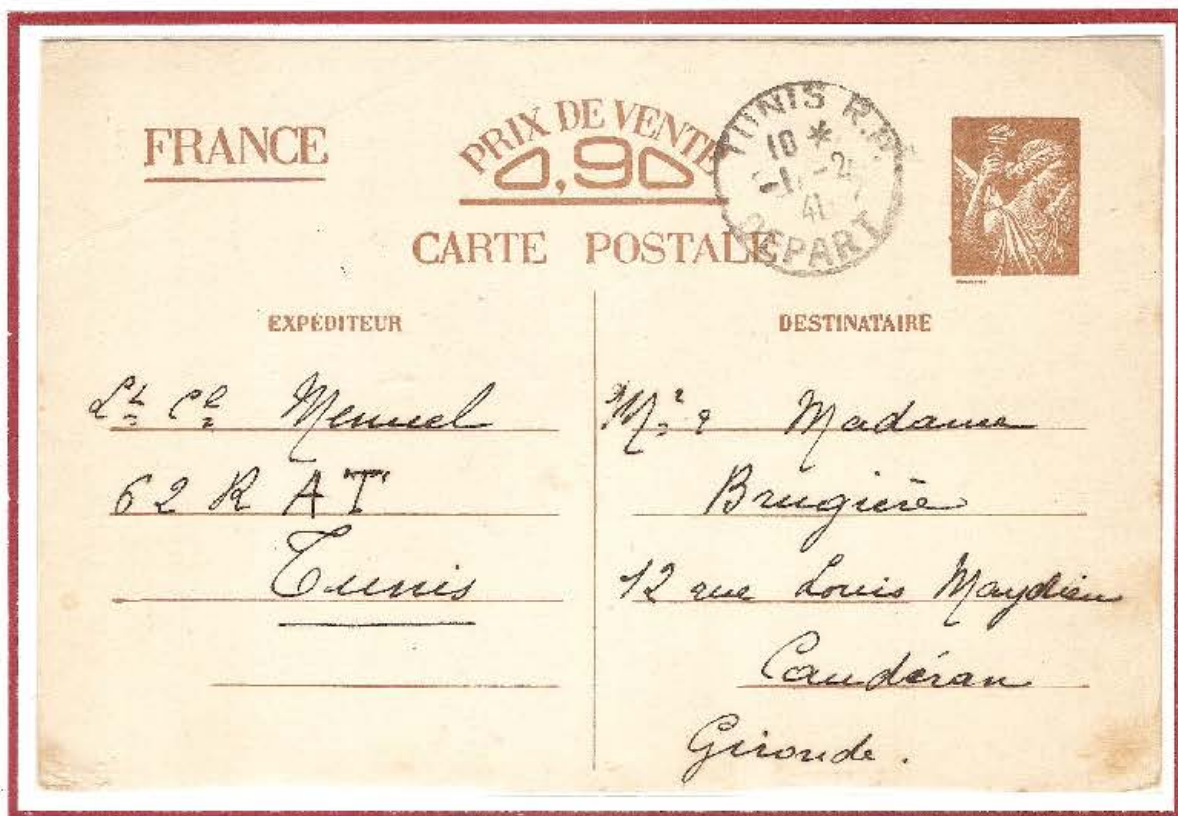 FRANCE
PRIX DE VENTE
0,90
CARTE POSTALE
TUNIS R.P.
10 *
41
DEPART
EXPÉDITEUR
Lt Cl Mennel
62 R A T
Tunis
DESTINATAIRE
Madame
Brugière
12 rue Louis Maydieu
Caudéran
Gironde.